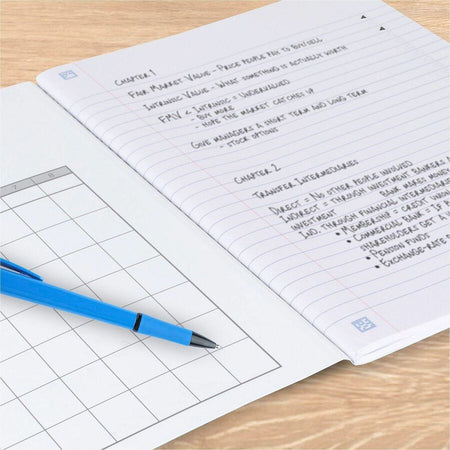 Chapter 1
Fair Market Value - Price people pay to buy/sell
Intrinsic Value - What something is actually worth
FMV < Intrinsic = Undervalued
- Buy more
- Hope the market catches up
Give managers a short term and long term
- stock options
Chapter 2
Transfer Intermediaries
Direct = No other people involved
Indirect = through investment bankers a
investment bank makes money
Ind. through financial intermediaries
• Membership = credit union
• Commercial bank = if
shareholders get a
• Pension funds
• Exchange-rate